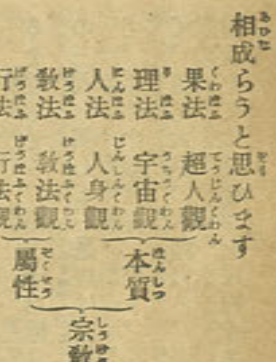 相成らうと思ひます
果法 超人觀
理法 宇宙觀
人法 人身觀
教法 教法觀
行法 行法觀
本質
屬性
宗教